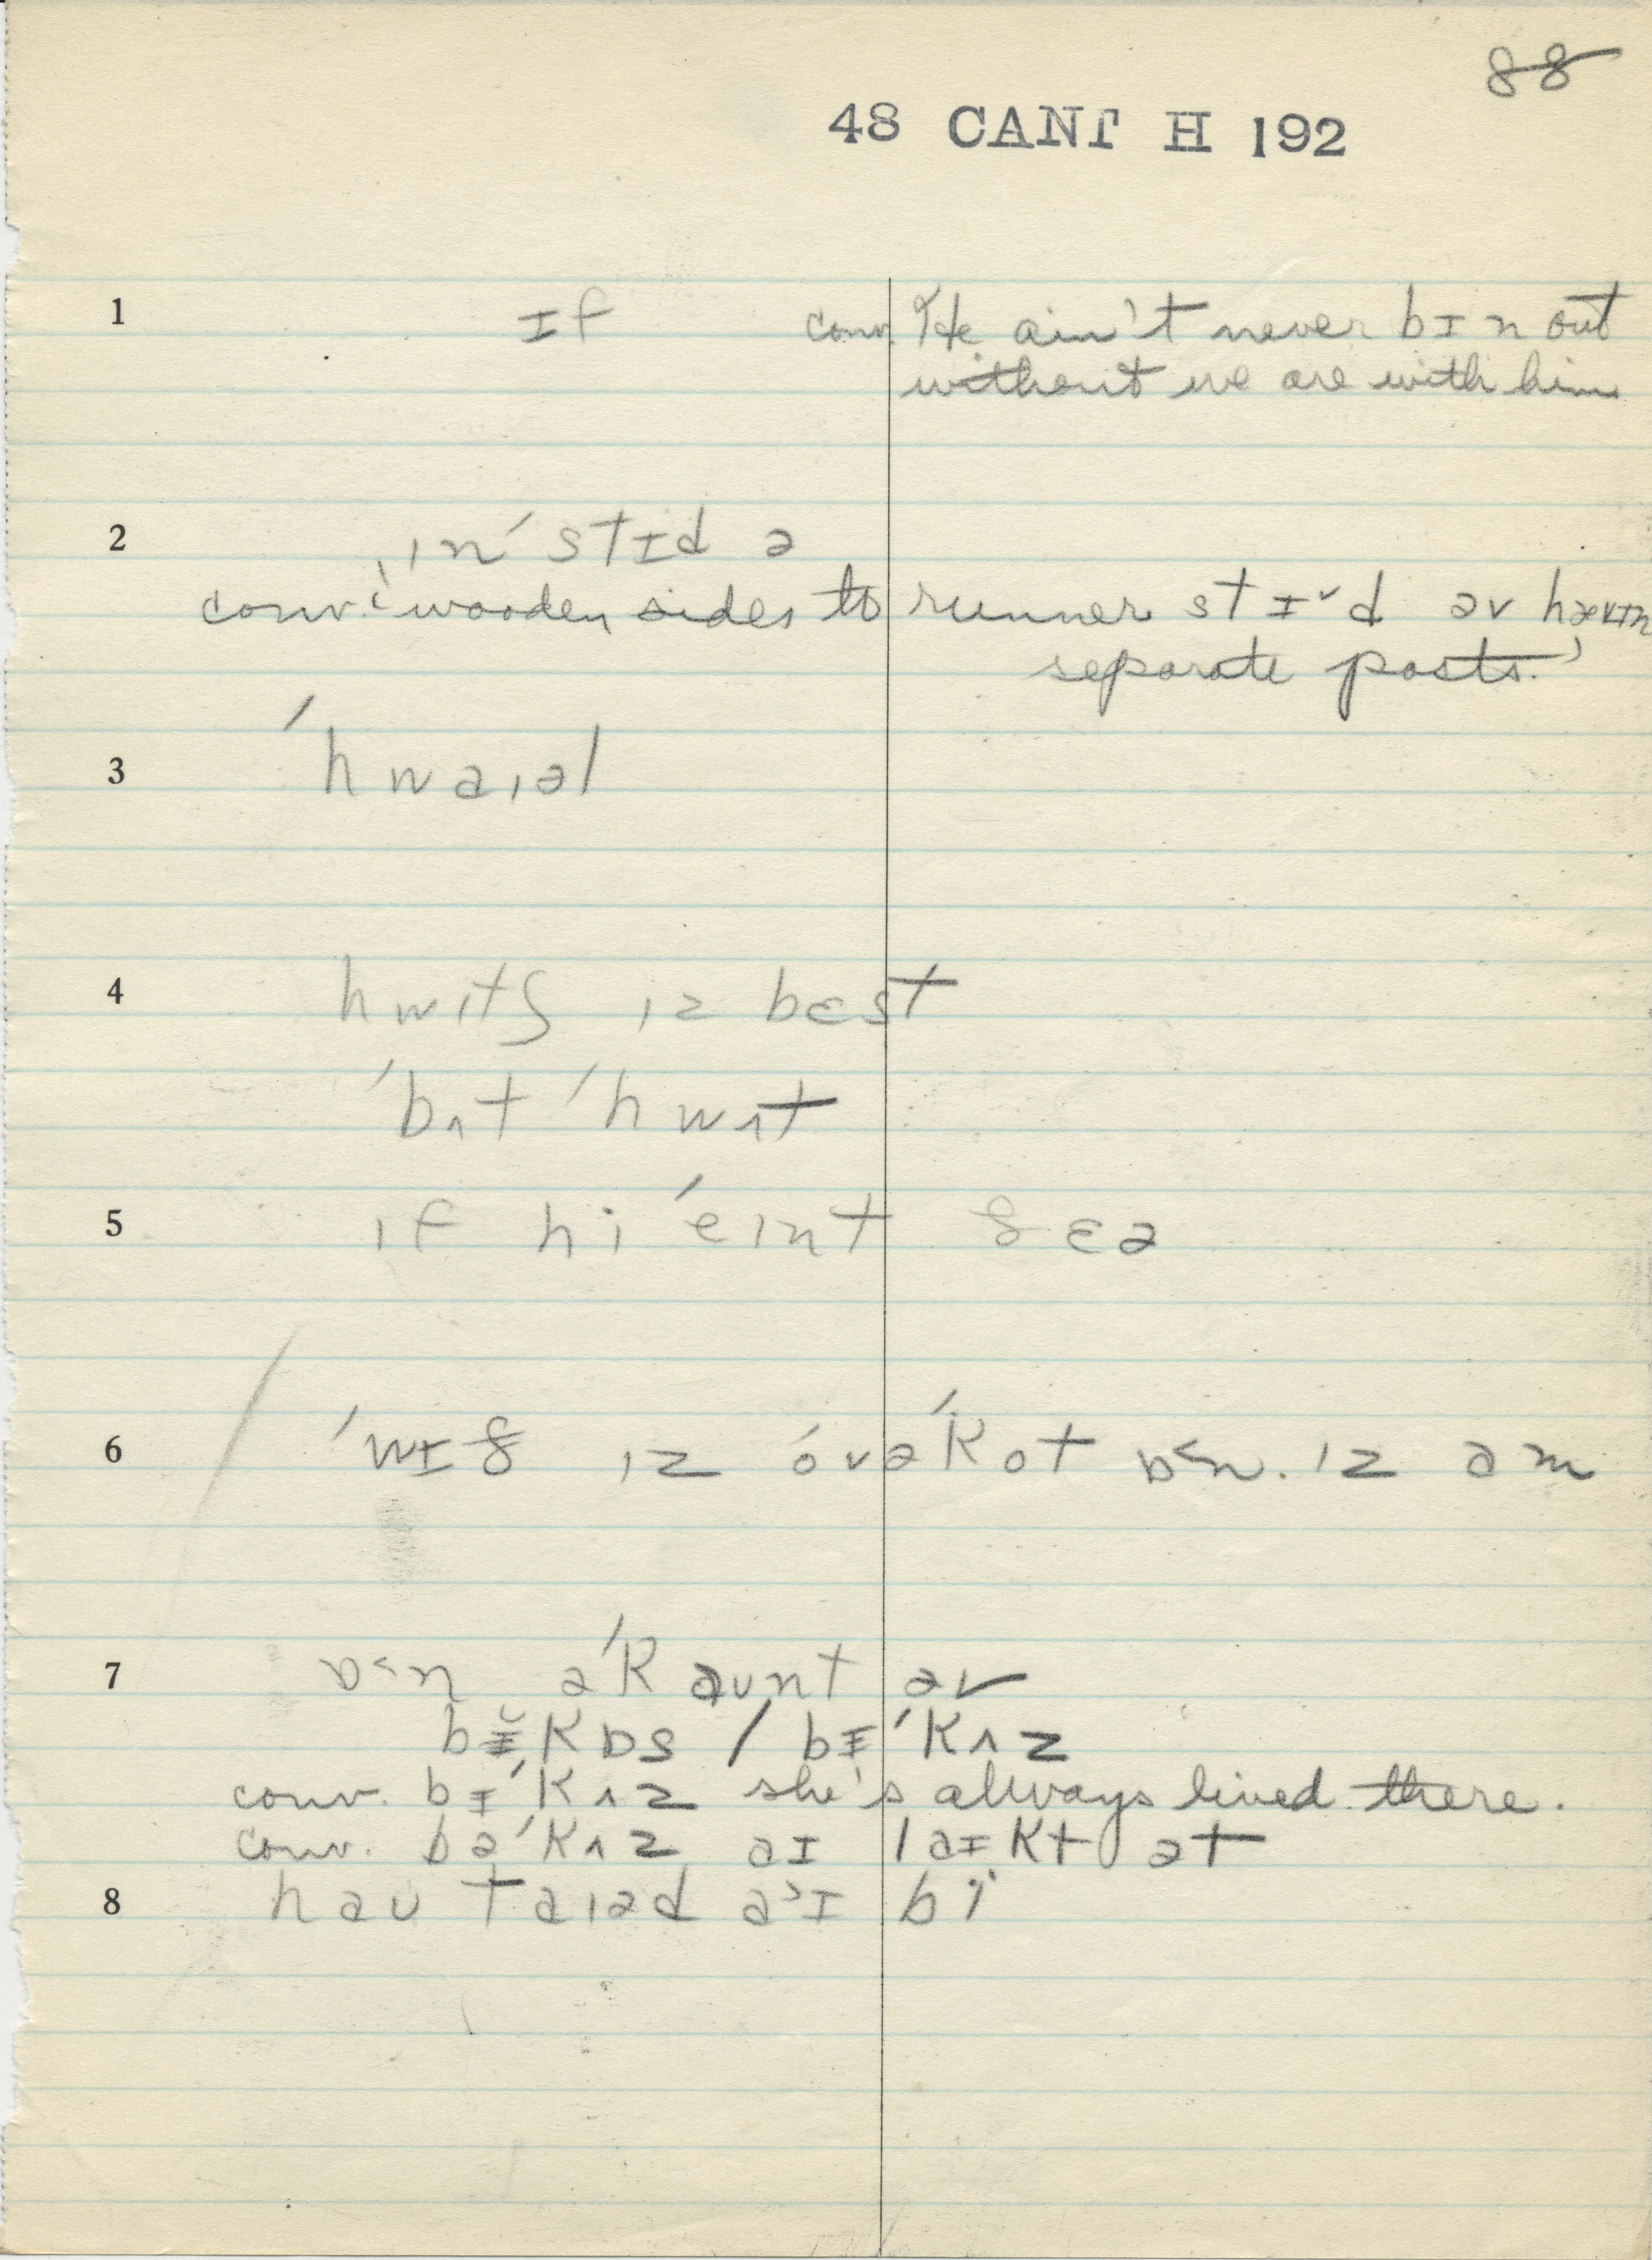 88
48 CANT H 192
1 ɪf conv. He ain't never bɪn out
without we are with him
2 ˌınˈstɪd ə
conv. 'wooden sides to runner stɪ˅d əv hævɪn
separate posts.'
3 ˈhwaıəl
4 hwıtʃ ız bɛst
ˈbʌt ˈhwʌt
5 ıf hi ˈeınt ðɛə
6 ˈwɪð ız óvəˈkot ɒ˂n. ız əm
7 ɒ˂n əˈkaunt əv
bɪ̆kɒs / bɪˈkʌz
conv. bɪˈkʌz she's always lived there.
conv. bəˈkʌz aɪ laɪkt ət
8 hau taıəd a˃ɪ bi